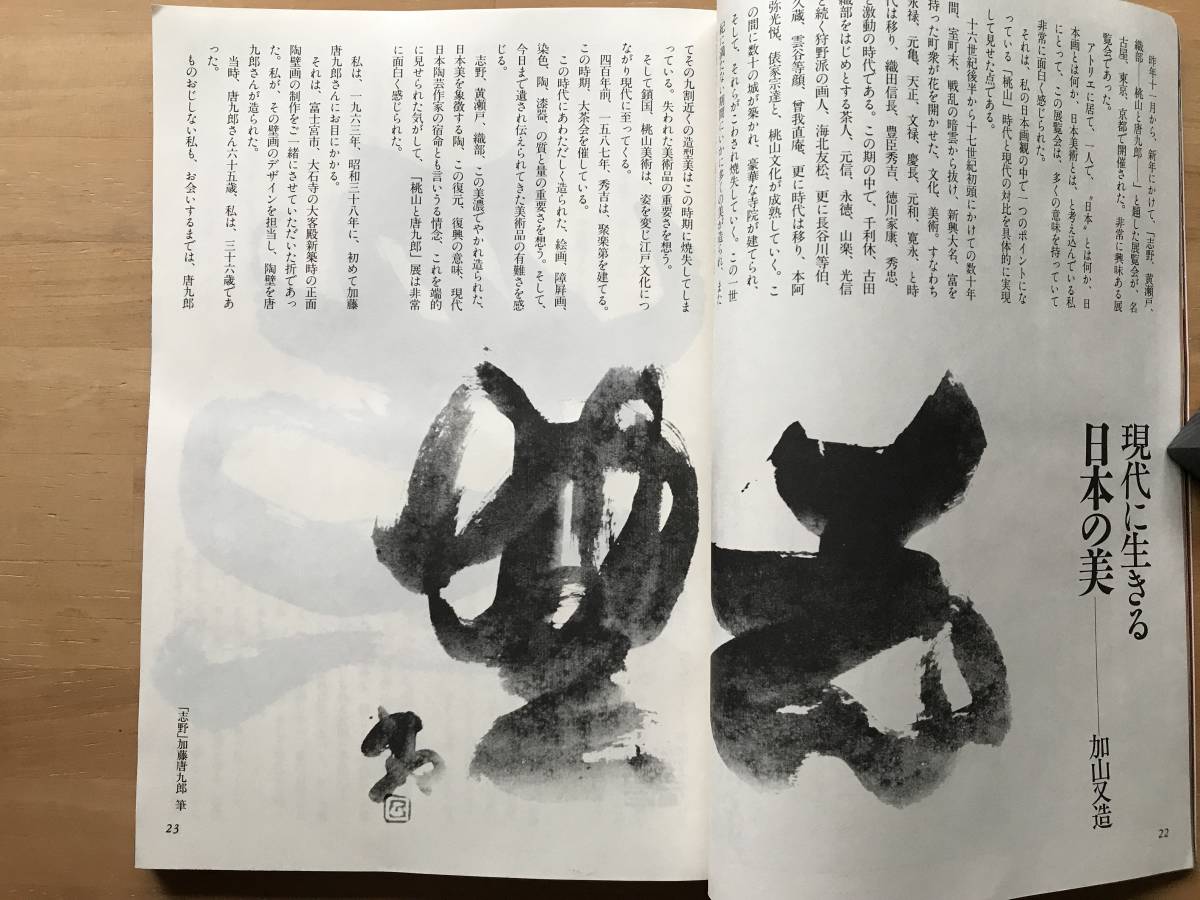 現代に生きる
日本の美
加山又造
昨年十一月から、新年にかけて、「志野、黄瀬戸、
織部 桃山と唐九郎――」と題した展覧会が、名
古屋、東京、京都で開催された。非常に興味ある展
覧会であった。
アトリエに居て、一人で、〝日本〟とは何か、日
本画とは何か、日本美術とは、と考え込んでいる私
にとって、この展覧会は、多くの意味を持っていて
非常に面白く感じられた。
それは、私の日本画観の中で一つのポイントにな
っている「桃山」時代と現代の対比を具体的に実現
して見せた点である。
十六世紀後半から十七世紀初頭にかけての数十年
間、室町末、戦乱の暗雲から抜け、新興大名、富を
持った町衆が花を開かせた、文化、美術。すなわち
永禄、元亀、天正、文禄、慶長、元和、寛永、と時
代は移り、織田信長、豊臣秀吉、徳川家康、秀忠、
と激動の時代である。この期の中で、千利休、古田
織部をはじめとする茶人、元信、永徳、山楽、光信
と続く狩野派の画人、海北友松、更に長谷川等伯、
久蔵、雲谷等顔、曾我直庵、更に時代は移り、本阿
弥光悦、俵家宗達と、桃山文化が成熟していく。こ
の間に数十の城が築かれ、豪華な寺院が建てられ、
そして、それらがこわされ焼失していく。この一世
てその九割近くの造型美はこの時期に焼失してしま
っている。失われた美術品の重要さを想う。
そして鎖国、桃山美術は、姿を変じ江戸文化につ
ながり現代に至ってくる。
四百年前、一五八七年、秀吉は、聚楽第を建てる。
この時期、大茶会を催している。
この時代にあわただしく造られた、絵画、障屛画、
染色、陶、漆器、の質と量の重要さを想う。そして、
今日まで遺され伝えられてきた美術品の有難さを感
じる。
志野、黄瀬戸、織部、この美濃でやかれ造られた、
日本美を象徴する陶、この復元、復興の意味、現代
日本陶芸作家の宿命とも言いうる情念、これを端的
に見せられた気がして、「桃山と唐九郎」展は非常
に面白く感じられた。
私は、一九六三年、昭和三十八年に、初めて加藤
唐九郎さんにお目にかかる。
それは、富士宮市、大石寺の大客殿新築時の正面
陶壁画の制作をご一緒にさせていただいた折であっ
た。私が、その壁画のデザインを担当し、陶壁を唐
九郎さんが造られた。
当時、唐九郎さん六十五歳、私は、三十六歳であ
った。
ものおじしない私も、お会いするまでは、唐九郎
「志野」加藤唐九郎 筆
22
23